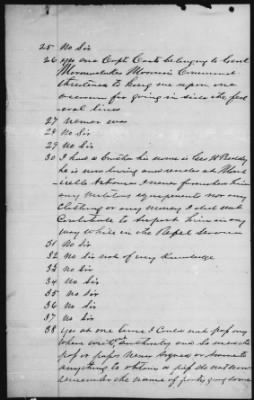 25 No Sir
26 yes one Capt Coats belonging to Genl
Marmadukes Missouri Command
threatened to hang me upon one
occasion for going in side the fed
eral lines
27 Never was
28 No Sir
29 No Sir
30 I had a brother his name is Geo W
he is now living and resides at
Arkansas I never furnished him
any military equipment nor any
clothing or any money I did not
Contribute to support him in any
way while in the Rebel Service
31 No Sir
32 No Sir not of my Knowledge
33 No Sir
34 No Sir
35 No Sir
36 No Sir
37 No Sir
38 Yes at one time I could not pass my
lines without authority and so
pass or paper Never Agreed or
anything to obtain a pass do not now
remember the name of party